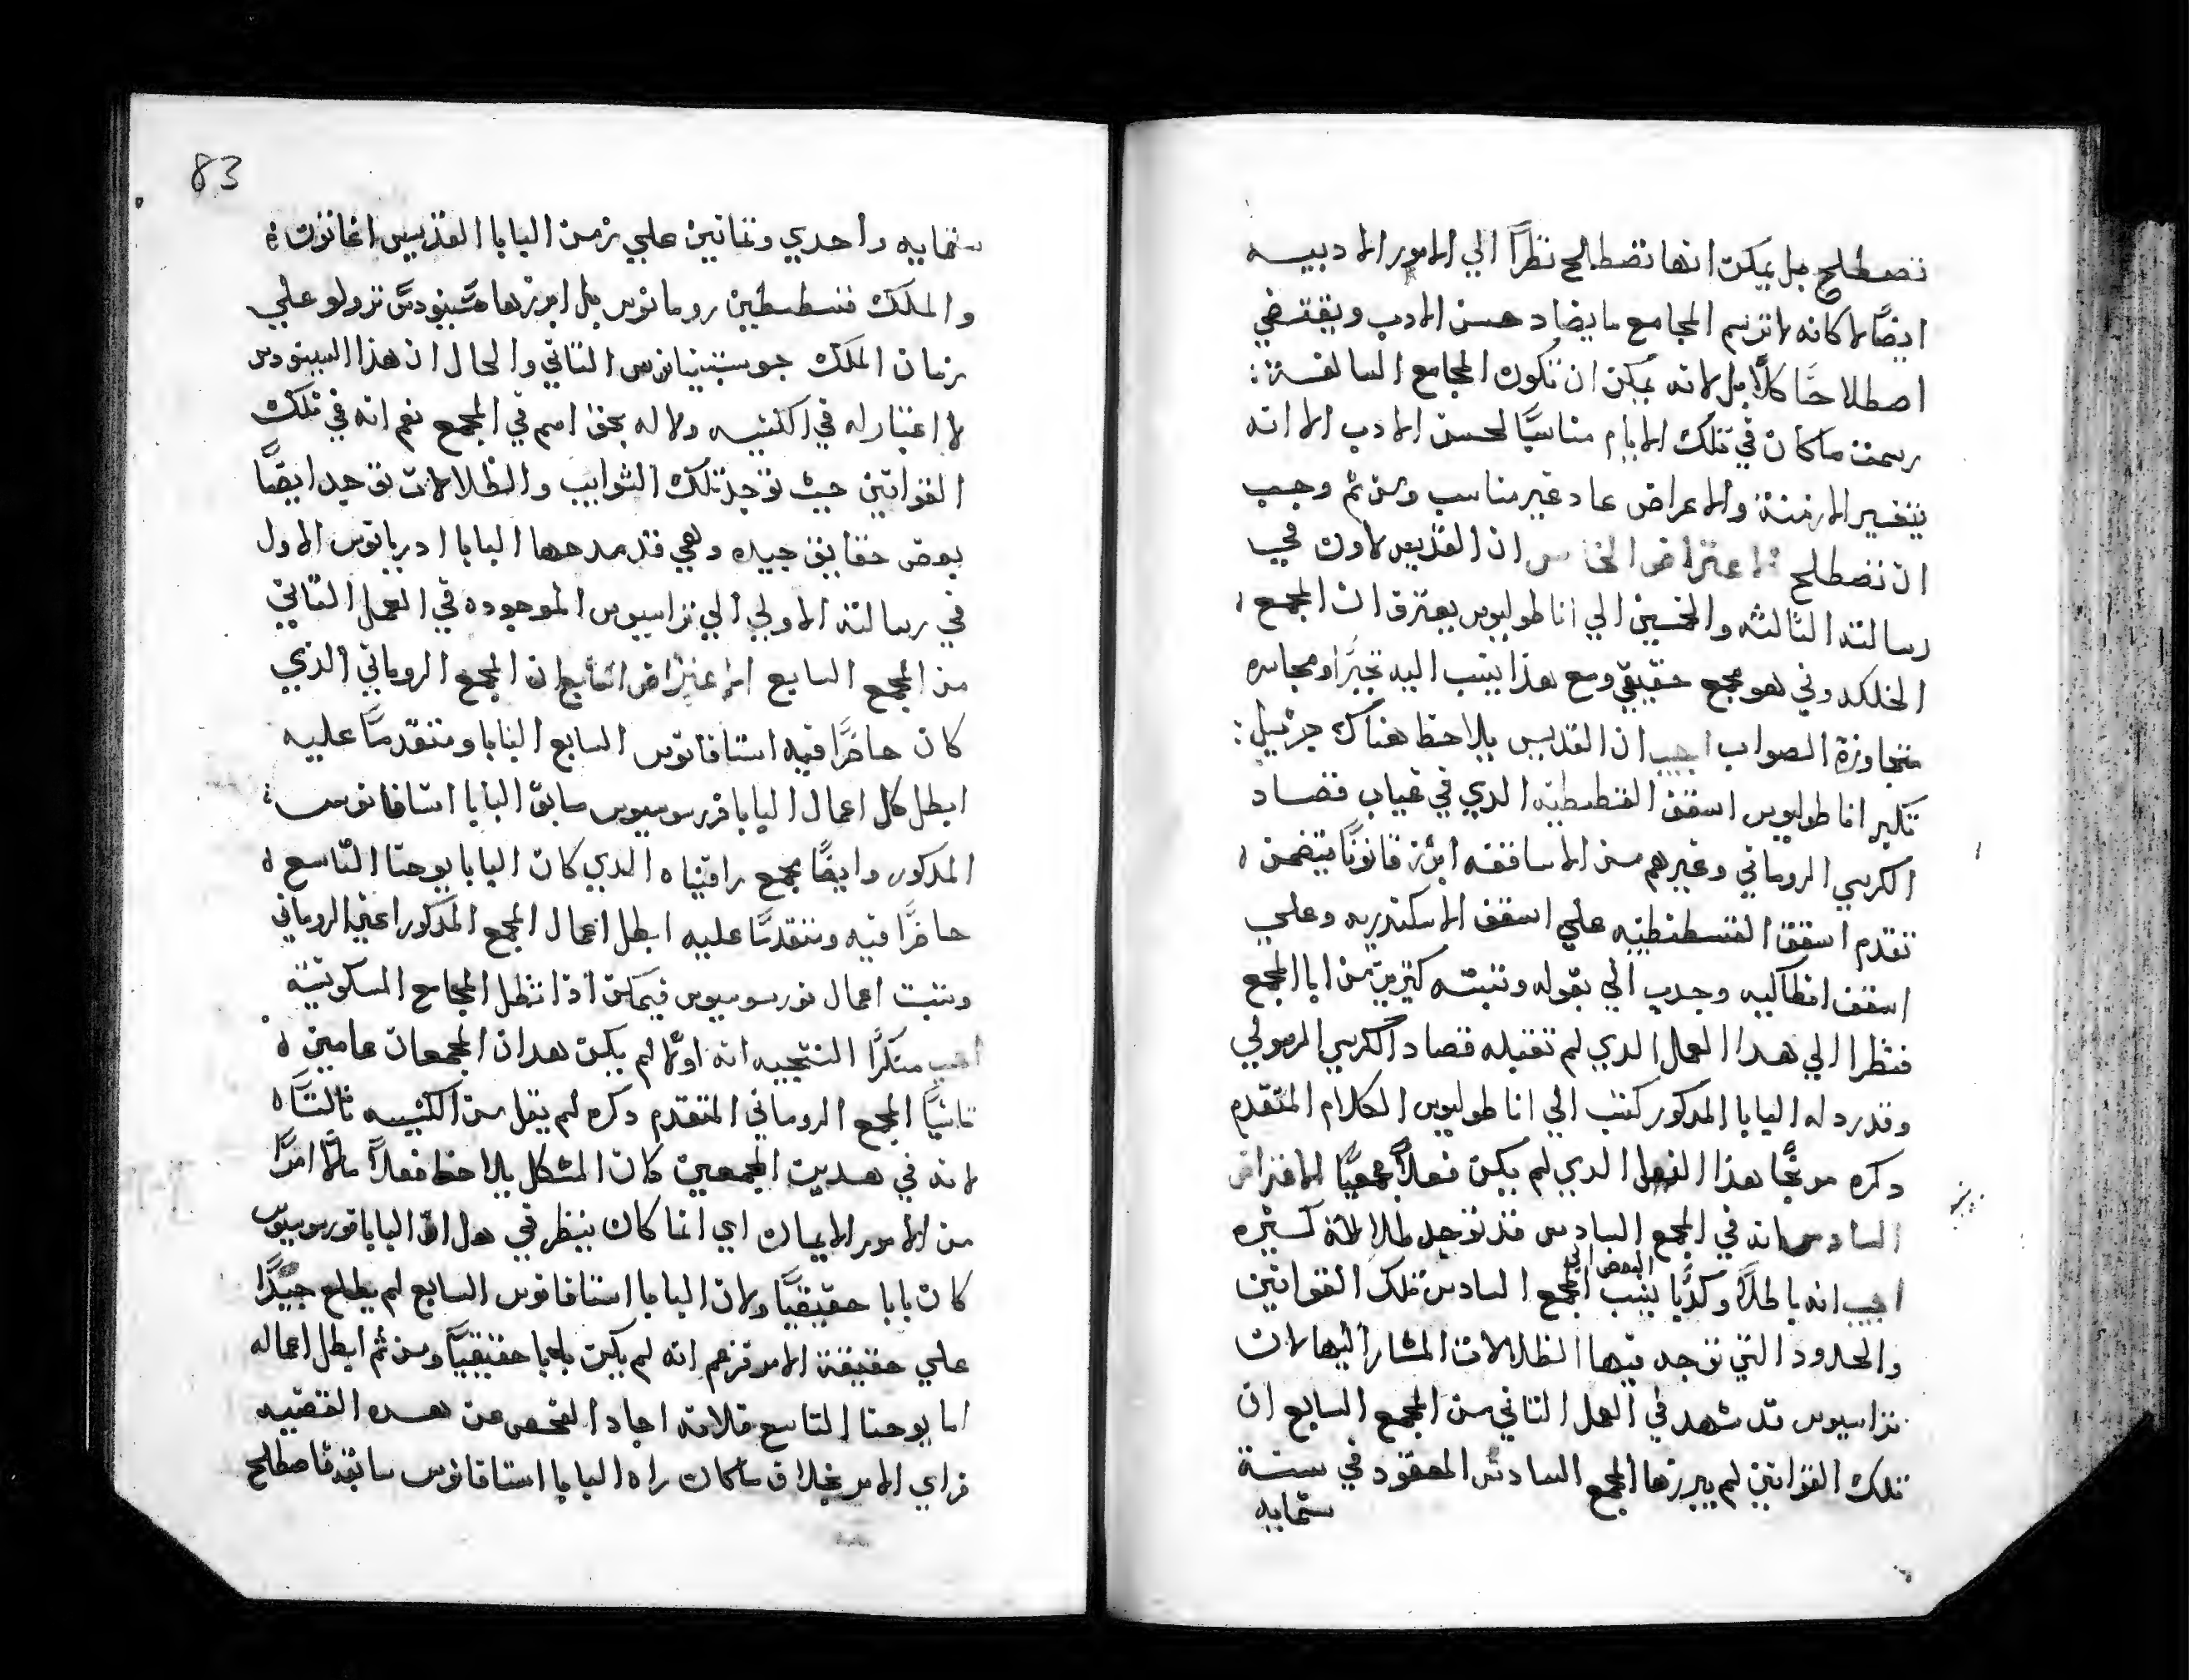 تصطلح بل يمكن انها تصطلح نظرًا الي الامور الادبيه
ايضًا لا كانه لا ترسم المجامع ما يضاد حسن الادب ويقتضي
اصطلاحًا كلًا بل لانه يمكن ان تكون المجامع السالفة :
رسمت ما كان في تلك الايام مناسبًا لحسن الادب الا انه
بتغيير الازمنة والاعراض عاد غير مناسب ومن ثم وجب
ان تصطلح الاعتراض الخامس ان القديس لاون في
رسالته الثالثه والخمسين الي اناطوليوس يعترف ان المجمع
الخلكدوني هو مجمع حقيقي ومع هذا ينسب اليه تجبرًا ومجاسره
متجاوزة الصواب اجيب ان القديس يلاحظ هناك جزييل :
تكبر اناطوليوس اسقف القسطنطينه الدي في غياب قصاد
الكرسي الروماني وغيرهم من الاساقفه ابرز قانونًا يتضمن
تقدم اسقف القسطنطينه علي اسقف الاسكندريه وعلي
اسقف انطاكيه وجدب الي بقوله وتثبته كثيرين من ابا المجمع
فنظرا الي هدا العمل الدي لم تقبله قصاد الكرسي الرسولي
وقد رد له البابا المدكور كتب الي اناطوليوس الكلام المتقدم
دكره موبخًا هذا الفعل الدي لم يكن فعلًا مجمعيًا الاعتراض
السادس انه في المجمع السادس قد توجد ظلالاة كثيره
اجيب انه باطلًا وكدبًا ينسب البعض الي المجمع السادس تلك القوانين
والحدود التي توجد فيها الظلالات المشار اليها لان
تراسيوس قد شهد في العمل الثاني من المجمع السابع ان
تلك القوانين لم يبرزها المجمع السادس المعقود في سنة
ستمايه
83
ستمايه واحدي وثمانين علي زمن البابا القديس اغاثون
والملك قسطنطين روماتوس بل ابرزها سينودس ترولو علي
زمان الملك جوستينيانوس الثاني والحال ان هذا السينودس
لا اعتبار له في الكنيسه ولا له بحق اسم في المجمع نعم انه في تلك
القوانين حيث توجد تلك الشوايب والظلالات توجد ايضًا
بعض حقايق جيده وهي قد مدحها البابا ادريانوس الاول
في رسالته الاولي الي تراسيوس الموجوده في العمل الثاني
من المجمع السابع الاعتراض السابع ان المجمع الروماني الذي
كان حاضرًا فيه استافانوس السابع البابا ومتقدمًا عليه
ابطل كل اعمال البابا فورموسيوس سابق البابا استافانوس
المدكور وايضًا مجمع رافنياه الدي كان البابا يوحنا التاسع
حاضرًا فيه ومتقدمًا عليه ابطل اعمال المجمع المدكور اعني الروماني
وتبت اعمال فورموسيوس فيمكن اذا تظل المجامع المسكونيه
اجيب منكرًا النتيجيه انه اولًا لم يكن هدان المجمعان عامين
ثانيًا المجمع الروماني المتقدم دكره لم يقبل من الكنيسه ثالثًا
لانه في هدين المجمعين كان المشكل يلاحظ فعلًا ما لا امرًا
من الامور الايمان اي انما كان ينظر في هل ان البابا فورموسيوس
كان بابا حقيقيًا ولان البابا استافانوس السابع لم يطلع جيدًا
علي حقيقة الامر فزعم انه لم يكن بابا حقيقيًا ومن ثم ابطل اعماله
اما يوحنا التاسع فلانه اجاد الفحص عن هده القضيه
فراي الامر بخلاف ما كان راه البابا استافانوس سابقه فاصطلح